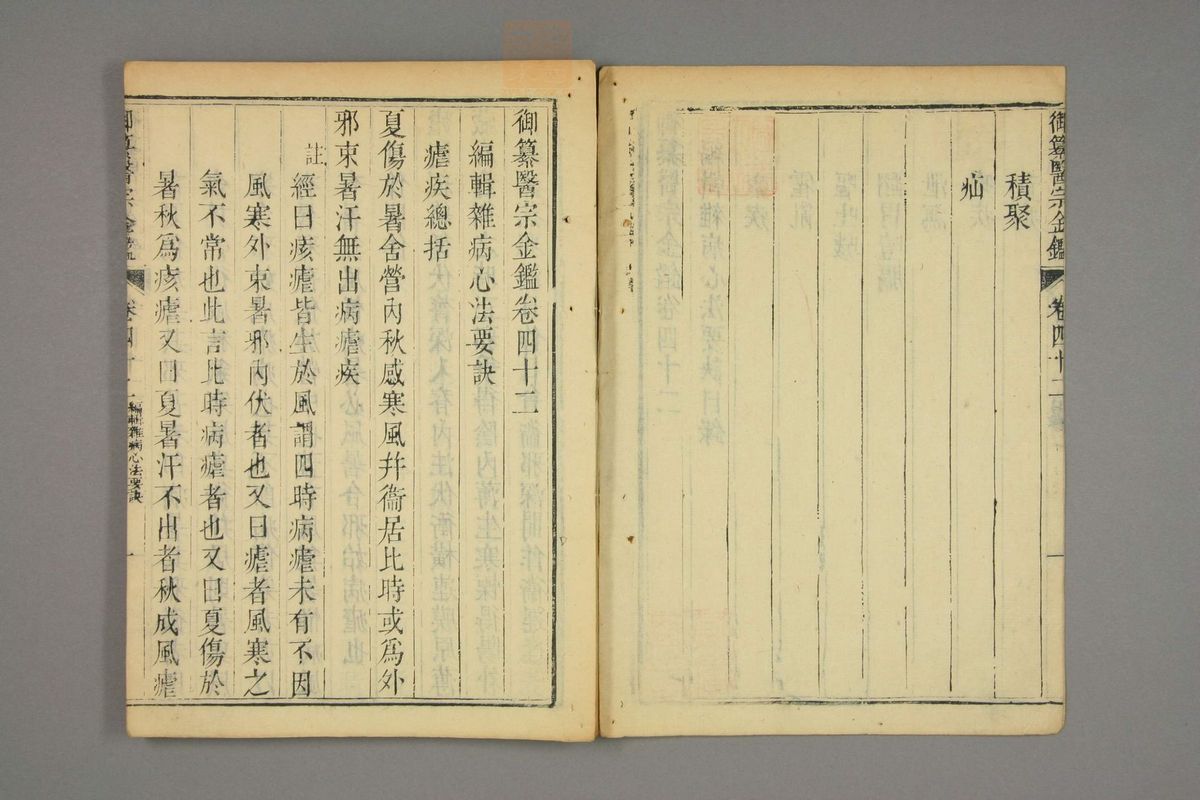 御纂醫宗金鑑 卷四十二 一
積聚
疝
御纂醫宗金鑑卷四十二
編輯雜病心法要訣
瘧疾總括
夏傷於暑舍營內秋感寒風幷衞居比時或爲外
邪束暑汗無出病瘧疾
註經曰痎瘧皆生於風謂四時病瘧未有不因
風寒外束暑邪內伏者也又曰瘧者風寒之
氣不常也此言比時病瘧者也又曰夏傷於
暑秋爲痎瘧又曰夏暑汗不出者秋成風瘧
御纂醫宗金鑑 卷四十二 編輯雜病心法要訣 一